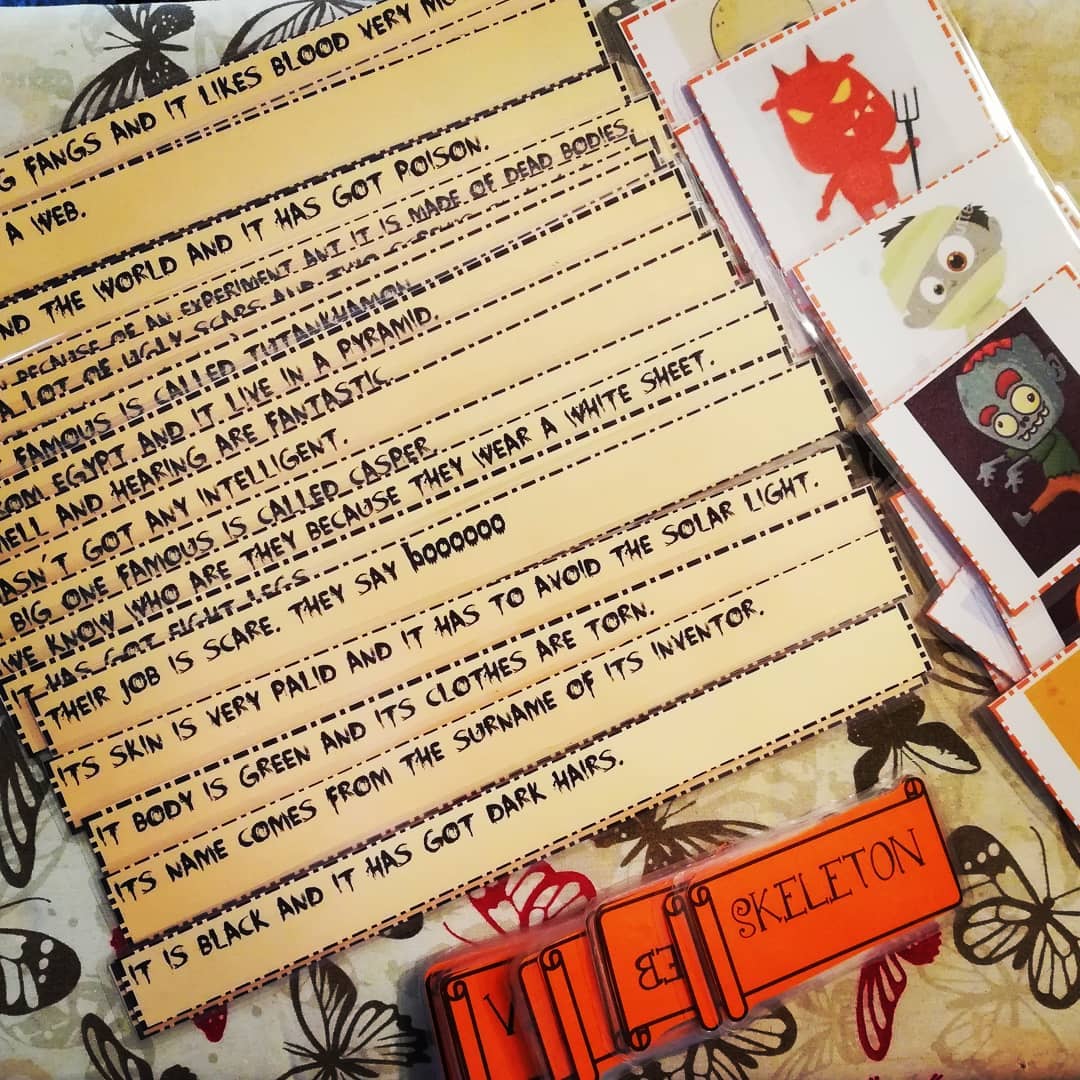 G FANGS AND IT LIKES BLOOD VERY
A WEB.
ND THE WORLD AND IT HAS GOT POISON.
BECAUSE OF AN EXPERIMENT ANT IT IS MADE OF DEAD BODIES.
A LOT OF UGLY SCARS AND TWO
FAMOUS IS CALLED TUTANKHAMON.
ROM EGYPT AND IT LIVE IN A PYRAMID.
MELL AND HEARING ARE FANTASTIC.
ASN'T GOT ANY INTELLIGENT.
BIG ONE FAMOUS IS CALLED CASPER.
WE KNOW WHO ARE THEY BECAUSE THEY WEAR A WHITE SHEET.
IT HAS GOT EIGHT LEGS
THEIR JOB IS SCARE. THEY SAY boooooo
ITS SKIN IS VERY PALID AND IT HAS TO AVOID THE SOLAR LIGHT.
IT BODY IS GREEN AND ITS CLOTHES ARE TORN.
ITS NAME COMES FROM THE SURNAME OF ITS INVENTOR.
IT IS BLACK AND IT HAS GOT DARK HAIRS.
SKELETON